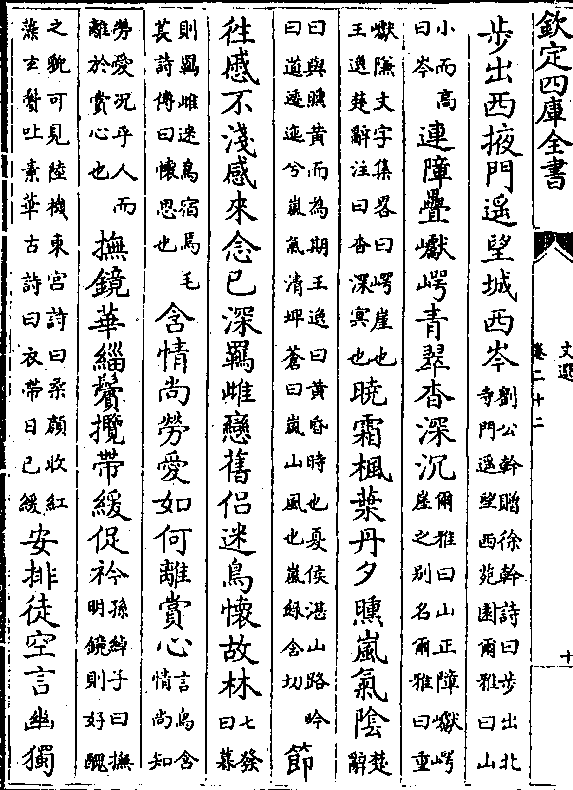 欽定四庫全書
文選
卷二十二
十
步出西掖門遙望城西岑
劉公幹贈徐幹詩曰步出北
寺門遥望西苑園爾雅曰山
小而高
曰岑
連障疊巘崿青翠杳深沉
爾雅曰山正障巘崿
崖之别名爾雅曰重
巘隒文字集畧曰崿崖也
王逸楚辭注曰杳深冥也
曉霜楓葉丹夕曛嵐氣陰
楚
辭
曰與曛黄而為期王逸曰黄昏時也夏侯湛山路吟
曰道逶迤兮嵐氣清埤蒼曰嵐山風也嵐緑含切
節
徃慼不淺感來念已深羈雌戀舊侣迷鳥懷故林
七發
曰暮
則羈雌迷鳥宿焉毛
萇詩傳曰懷思也
含情尚勞愛如何離賞心
言鳥含
情尚知
勞愛况乎人而
離於賞心也
撫鏡華緇鬢攬帶緩促衿
孫綽子曰撫
明鏡則好醜
之貌可見陸機東宫詩曰柔顔收紅
蕖玄鬢吐素華古詩曰衣帶日已緩
安排徒空言幽獨